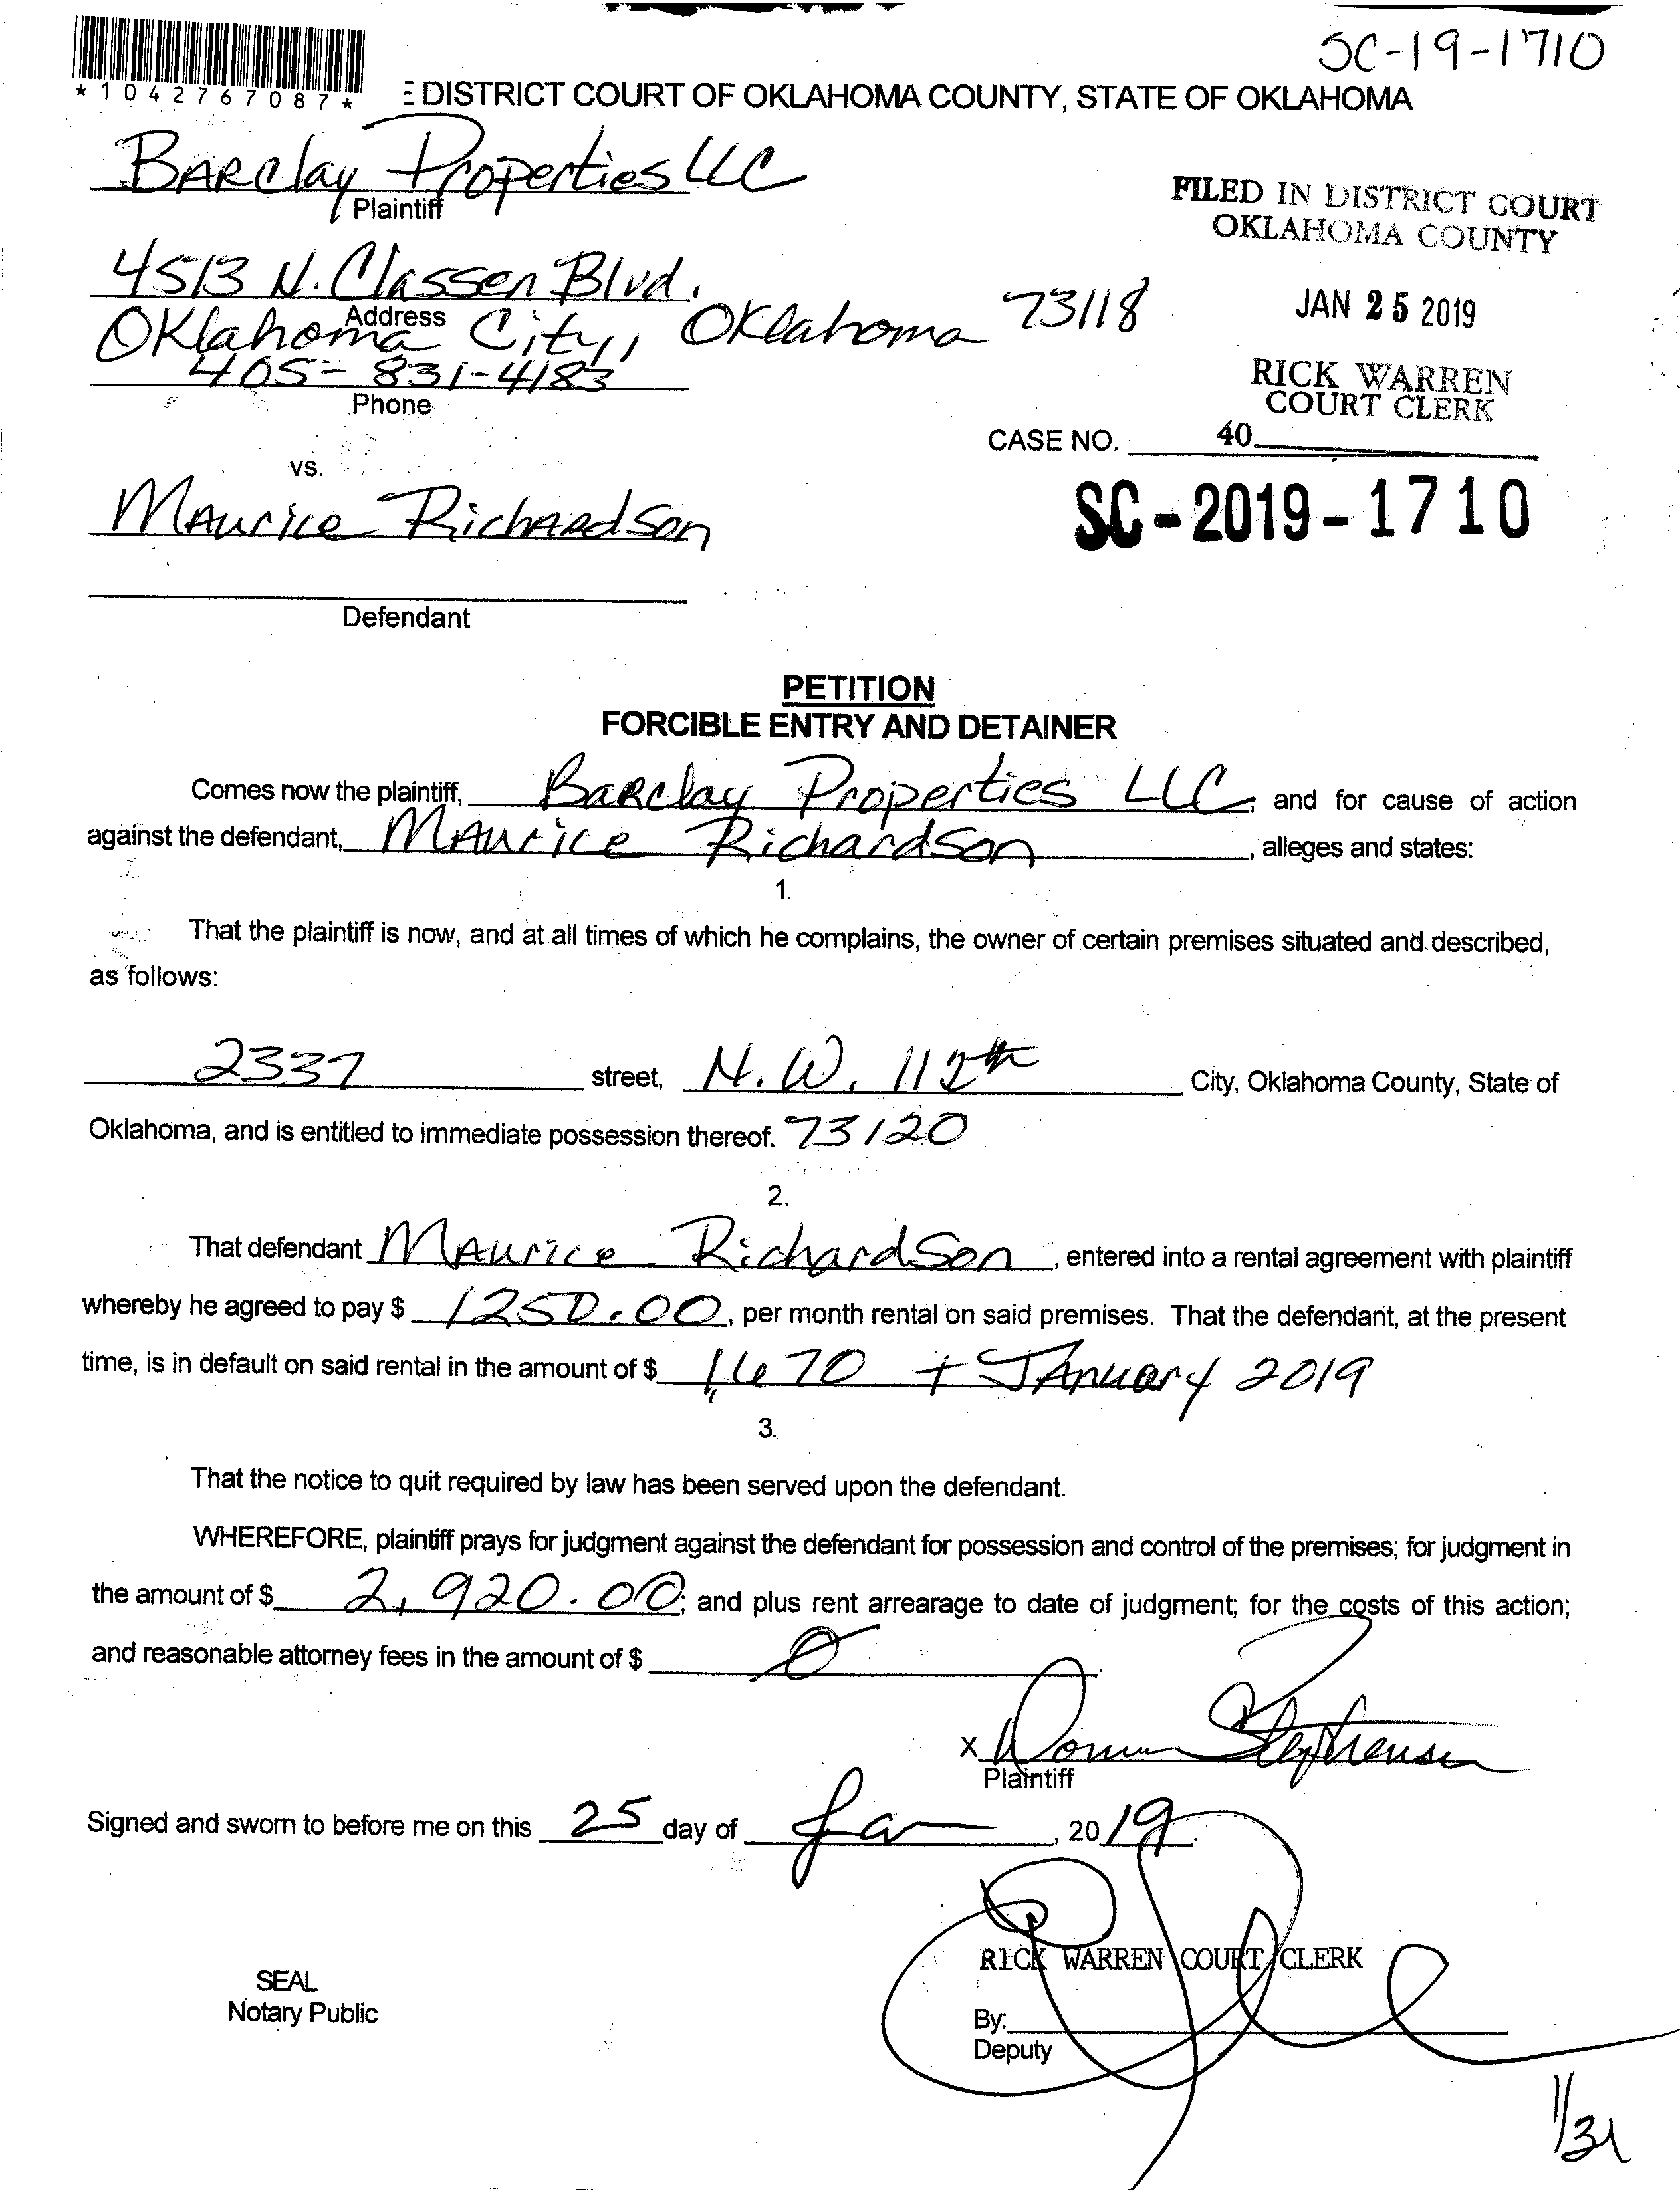 SC-19-1710
*1042767087*
E DISTRICT COURT OF OKLAHOMA COUNTY, STATE OF OKLAHOMA
BARClay Properties LLC
Plaintiff
FILED IN DISTRICT COURT
OKLAHOMA COUNTY
4513 N. Classen Blvd.
Address
Oklahoma City, Oklahoma 73118
JAN 25 2019
405-831-4183
Phone
RICK WARREN
COURT CLERK
CASE NO. 40
vs.
MAurice RichARdson
SC-2019-1710
Defendant
PETITION
FORCIBLE ENTRY AND DETAINER
Comes now the plaintiff, BaRclay Properties LLC, and for cause of action
against the defendant, MAurice Richardson, alleges and states:
1.
That the plaintiff is now, and at all times of which he complains, the owner of certain premises situated and described,
as follows:
2337 street, N.W. 112th City, Oklahoma County, State of
Oklahoma, and is entitled to immediate possession thereof. 73120
2.
That defendant MAurice Richardson, entered into a rental agreement with plaintiff
whereby he agreed to pay $ 1250.00, per month rental on said premises. That the defendant, at the present
time, is in default on said rental in the amount of $ 1,670 + JAnuary 2019
3.
That the notice to quit required by law has been served upon the defendant.
WHEREFORE, plaintiff prays for judgment against the defendant for possession and control of the premises; for judgment in
the amount of $ 2,920.00; and plus rent arrearage to date of judgment; for the costs of this action;
and reasonable attorney fees in the amount of $ 0.
x Donna Stephenson
Plaintiff
Signed and sworn to before me on this 25 day of Jan, 2019.
RICK WARREN COURT CLERK
SEAL
Notary Public
By:
Deputy
1/31